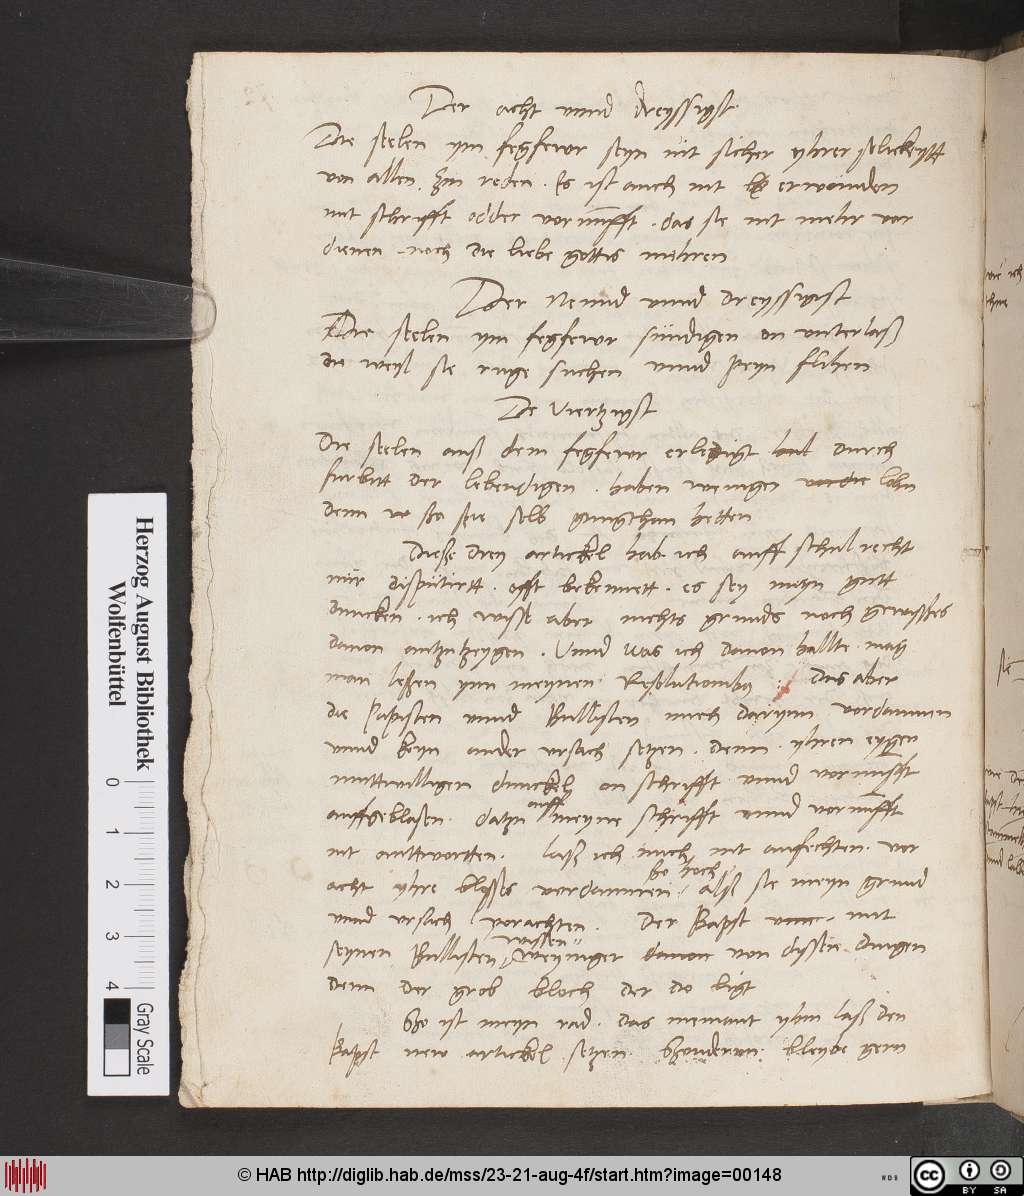 Der acht unnd dreyssigst
Die seelen ym fegfewr seyn nit sicher yhrer selickeytt
von allen zu reden. Es ist auch nit erwunden
mit schrifft odder vornunfft. das sie nit mehr vor
dienen. noch die liebe gottis mehren
Der Neund unnd dreyssigist
Die seelen ym fegfewr sundigen on unterlaß
die weyl sie ruge suchen unnd peyn flihen
De viertzigst
Die seelen auß dem fegfewr erledigt durch
furbitt der lebendigen. haben weniger lohn
denn so sie selb gnugthan hetten
Diesße drey artickel hab ich auff schul recht
nur disputirtt. offt bekennett. es sey meyn gutt
duncken. ich wisse aber nichts grunds noch gewisses
davon antzutzeygen. Unnd was ich davon hallte. mag
man leßen ynn meynen Resolutionibus. Das aber
die Papisten unnd Bullisten mich darynn vordamnen
unnd keyn ander ursach setzen. denn yhren eygen
muttwilligen dunckel on schrifft unnd vornunfft
auffgeblasen. datzu auff meyne schrifft unnd vornunfft
nit anttwortten. laß ich mich nit anfechten. vor
acht yhre blosses vordamnen. ßo hoch
alß sie meyn grund
unnd ursach vorachten. Der Bapst mit
seynen Bullisten wissen weyniger von dissen dingen
denn der grob bloch der do ligt
ßo ist meyn rad. das niemant yhm laß den
Bapst new artickel setzen. ßondernn bleybe gern
Herzog August Bibliothek
Wolfenbüttel
0 1 2 3 4
Gray Scale
© HAB http://diglib.hab.de/mss/23-21-aug-4f/start.htm?image=00148
WDB
cc BY SA